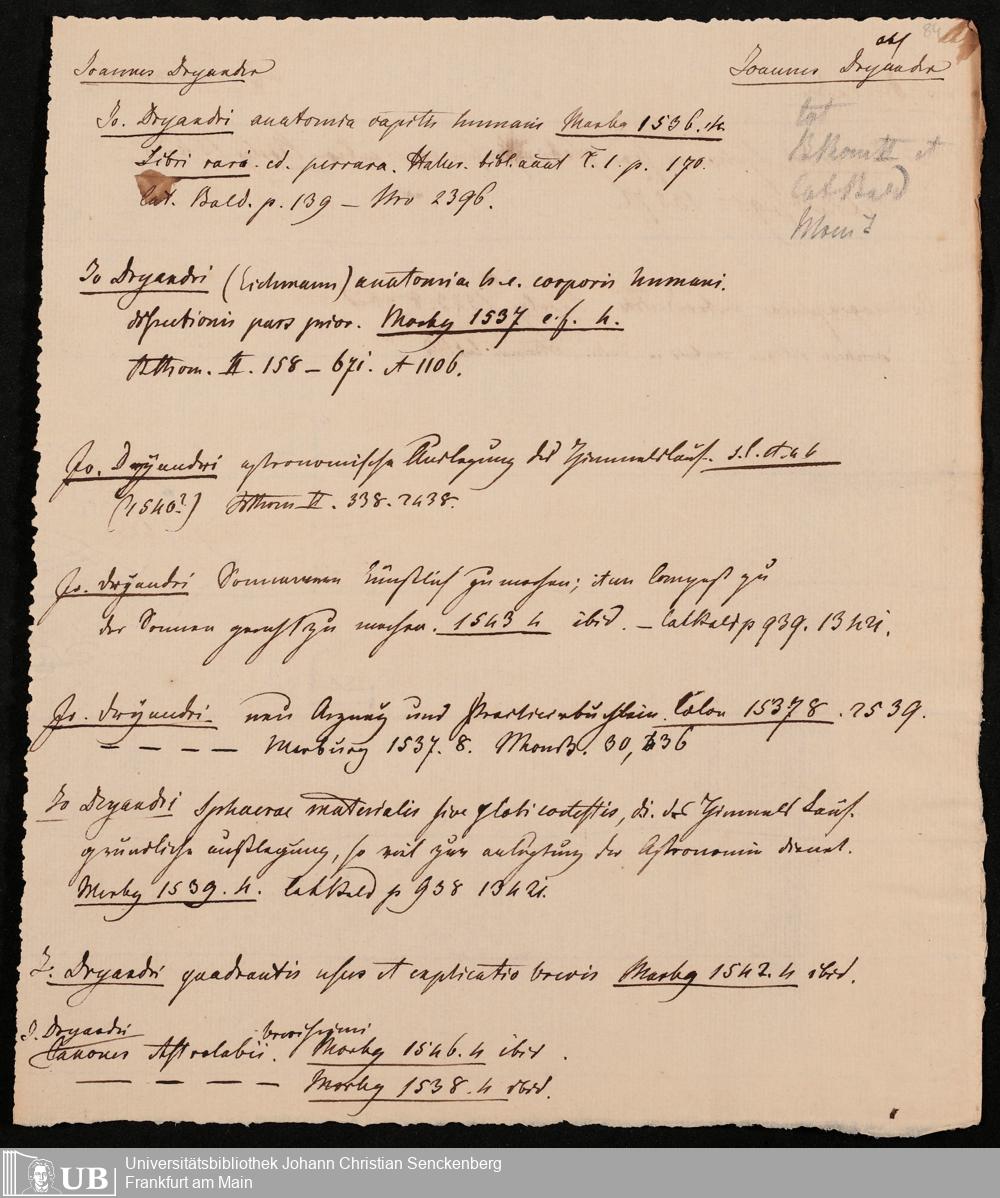 Joannes Dryander
Joannes Dryander
Jo. Dryandri anatomia capitis humani Marbg 1536. 4.
Libri rari. ed. perrara. Haller. bibl. anat T. 1. p. 170.
Cat. Bald. p. 139 – Nro 2396.
Cat Bald
Jo Dryandri (Eichmann) anatomiae h. e. corporis humani.
dissectionis pars prior. Marbg 1537 c. f. 4.
Bthom. II. 158 – 671. et 1106.
Jo. Dryandri astronomische Auslegung des Himmelslauf. s. l. et a 6
(1540?) Bthom II. 338. 2438.
Jo. Dryandri Sonnenuren künstlich zu machen; item Compast zu
der Sonnen gerecht zu machen. 1543 4 ibid. – Cat Bald p 939. 1342i.
Jo. Dryandri neu Arzney und Practicierbüchlein. Cöln 1537 8. 2539.
– – – – Marburg 1537. 8. 30, 36
Jo Dryandri Sphaerae materialis sive globi coelestis, di. des Himmels Lauf.
gründliche außlegung, so viel zur der Astronomie dienet.
Marbg 1539. 4. Cat Bald p 938 1342i.
J. Dryandri quadrantis usus et explicatio brevis Marbg 1542. 4 ibid.
J. Dryandri brevissimi
Canones Astrolabii. Marbg 1546. 4 ibid.
– – – – Marbg 1538. 4 ibid.
UB Universitätsbibliothek Johann Christian Senckenberg
Frankfurt am Main